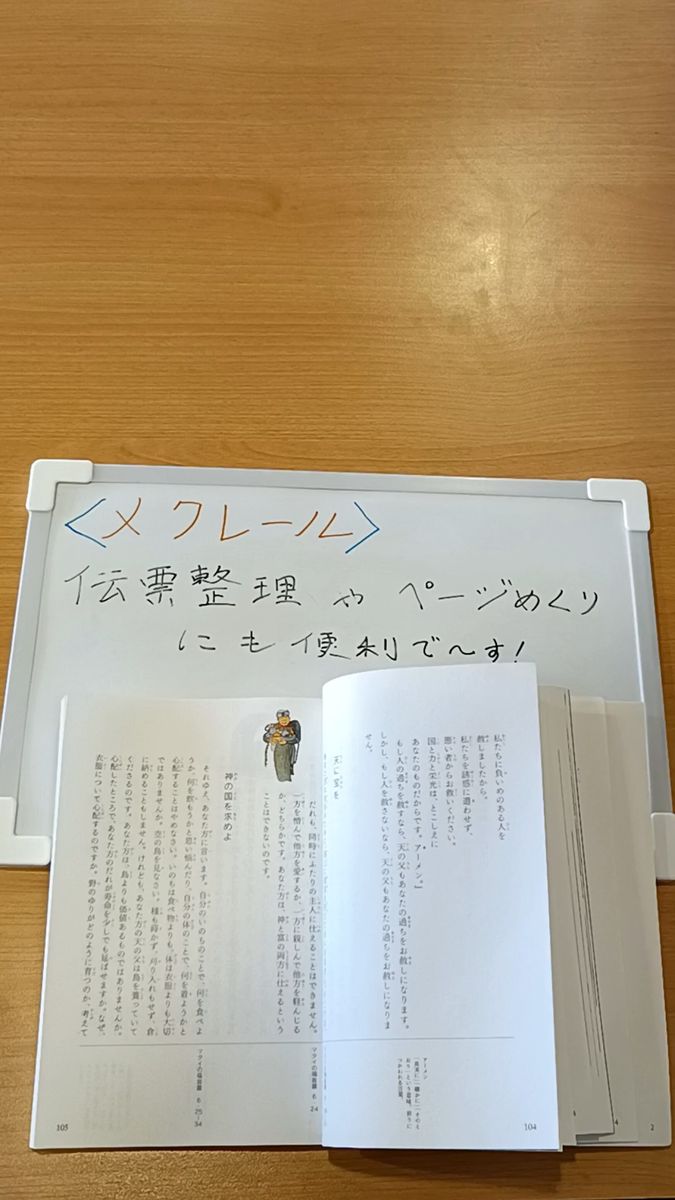 <メクレール>
伝票整理や ページめくり
にも便利で〜す!
私たちに負いめのある人を
赦しましたから。
私たちを誘惑に遭わせず、
悪い者からお救いください。
国と力と栄光は、とこしえに
あなたのものだからです。アーメン。』
もし人の過ちを赦すなら、天の父もあなたの過ちをお赦しになります。
しかし、もし人を赦さないなら、天の父もあなたの過ちをお赦しになりま
せん。
天に宝を
アーメン
「真実に」「確かに」「そのと
おり」という意味。祈りに
つかわれる言葉。
104
だれも、同時にふたりの主人に仕えることはできません。
一方を憎んで他方を愛するか、一方に親しんで他方を軽んじる
か、どちらかです。あなた方は、神と富の両方に仕えるという
ことはできないのです。
マタイの福音書 6 24
神の国を求めよ
それゆえ、あなた方に言います。自分のいのちのことで、何を食べよ
うか、何を飲もうかと思い悩んだり、自分の体のことで、何を着ようかと
心配することはやめなさい。いのちは食べ物よりも、体は衣服よりも大切
ではありませんか。空の鳥を見なさい。種も蒔かず、刈り入れもせず、倉
に納めることもしません。けれども、あなた方の天の父は鳥を養っていて
くださるのです。あなた方は、鳥よりも価値あるものではありませんか。
心配したところで、あなた方のだれが寿命を少しでも延ばせますか。なぜ、
衣服について心配するのですか。野のゆりがどのように育つのか、考えて
マタイの福音書 6 25-34
105
4
4
2